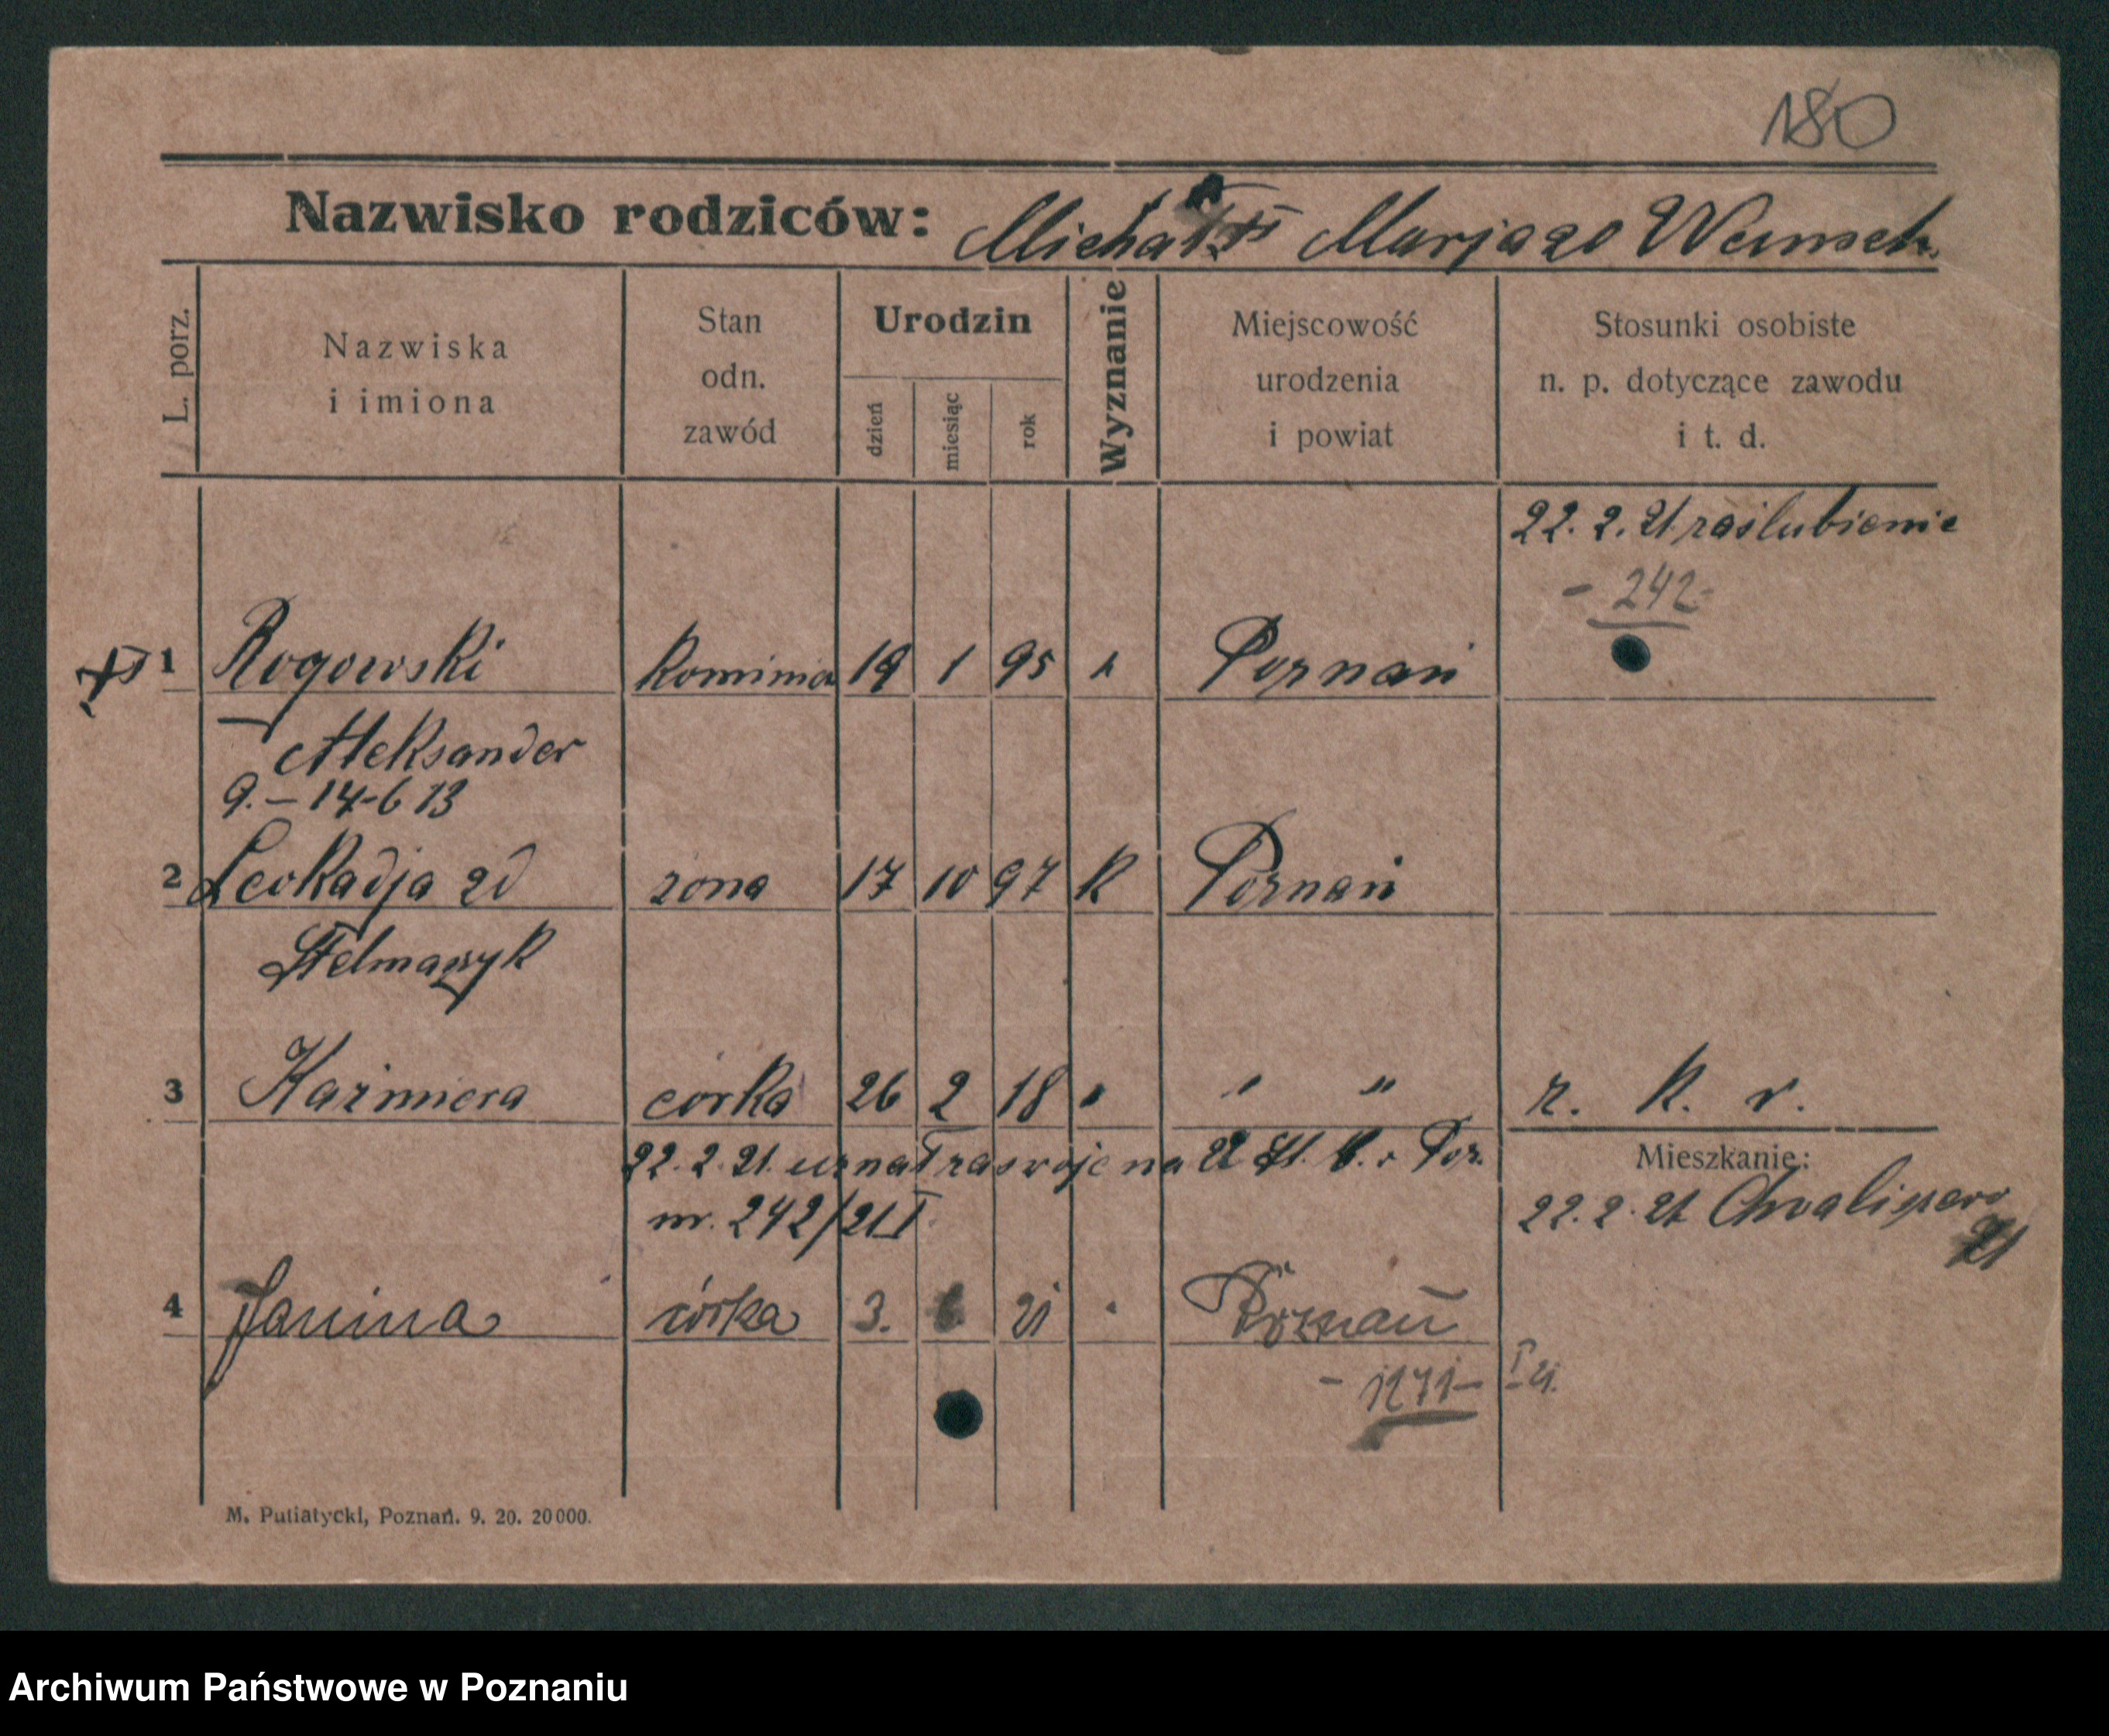 180
Nazwisko rodziców: Michał Marja zd Wunsch
L. porz.
Nazwiska i imiona
Stan odn. zawód
Urodzin
dzień
miesiąc
rok
Wyznanie
Miejscowość urodzenia i powiat
Stosunki osobiste n. p. dotyczące zawodu i t. d.
22. 2. 21 zaślubienie
- 242 -
1 Rogowski kominia 19 1 95 k Poznań
Aleksander
9. – 14-6 13
2 Leokadja zd zona 17 10 97 k Poznań
Stelmaszyk
3 Kazimiera córka 26 2 18 " " " r. k. v.
22. 2. 21. uznał za swoje na
nr. 242/21 I
Mieszkanie:
22. 2. 21 Chwaliszewo
21
4 Janina córka 3. 6 21 " Poznań
- 1271 - I 21.
M. Putiatycki, Poznań. 9. 20. 20000.
Archiwum Państwowe w Poznaniu